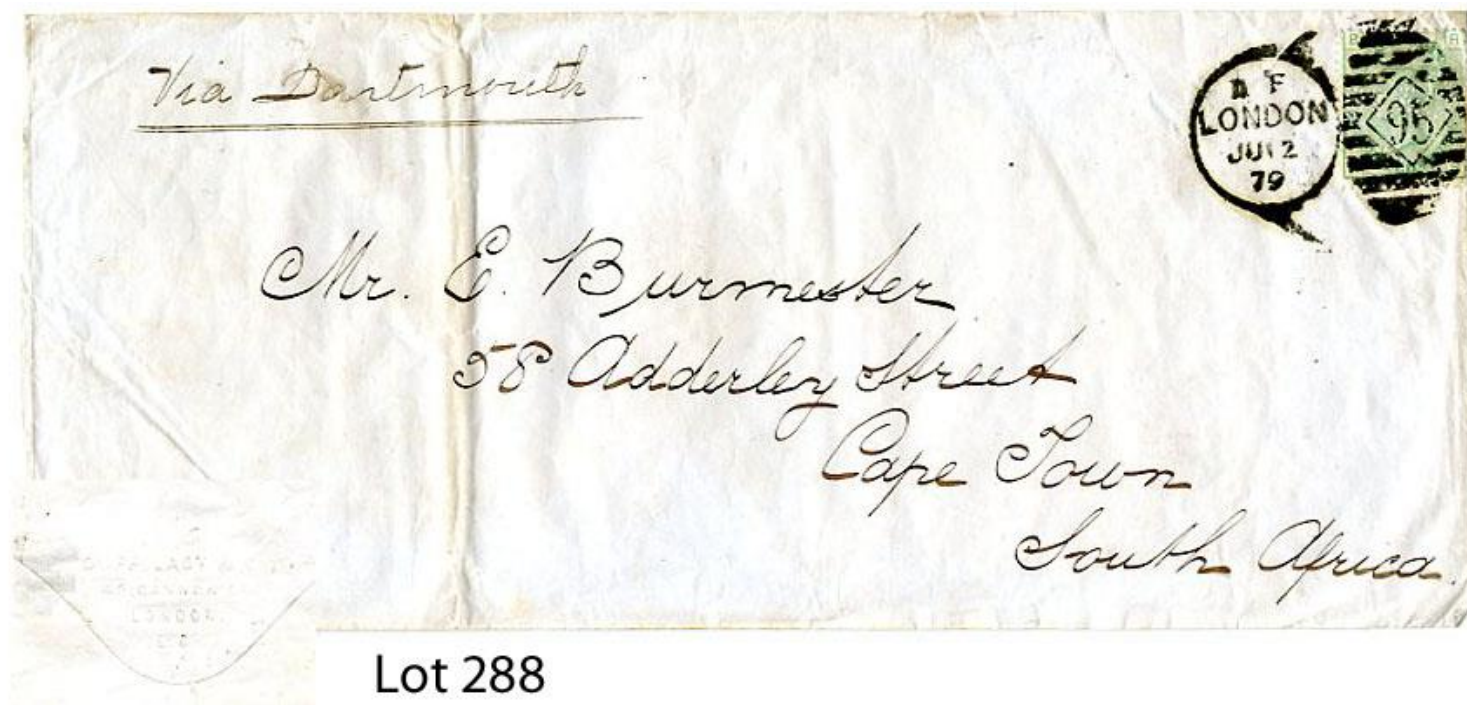 Via Dartmouth
LONDON
JU 12
79
95
Mr. E. Burmester
58 Adderley Street
Cape Town
South Africa.
Lot 288